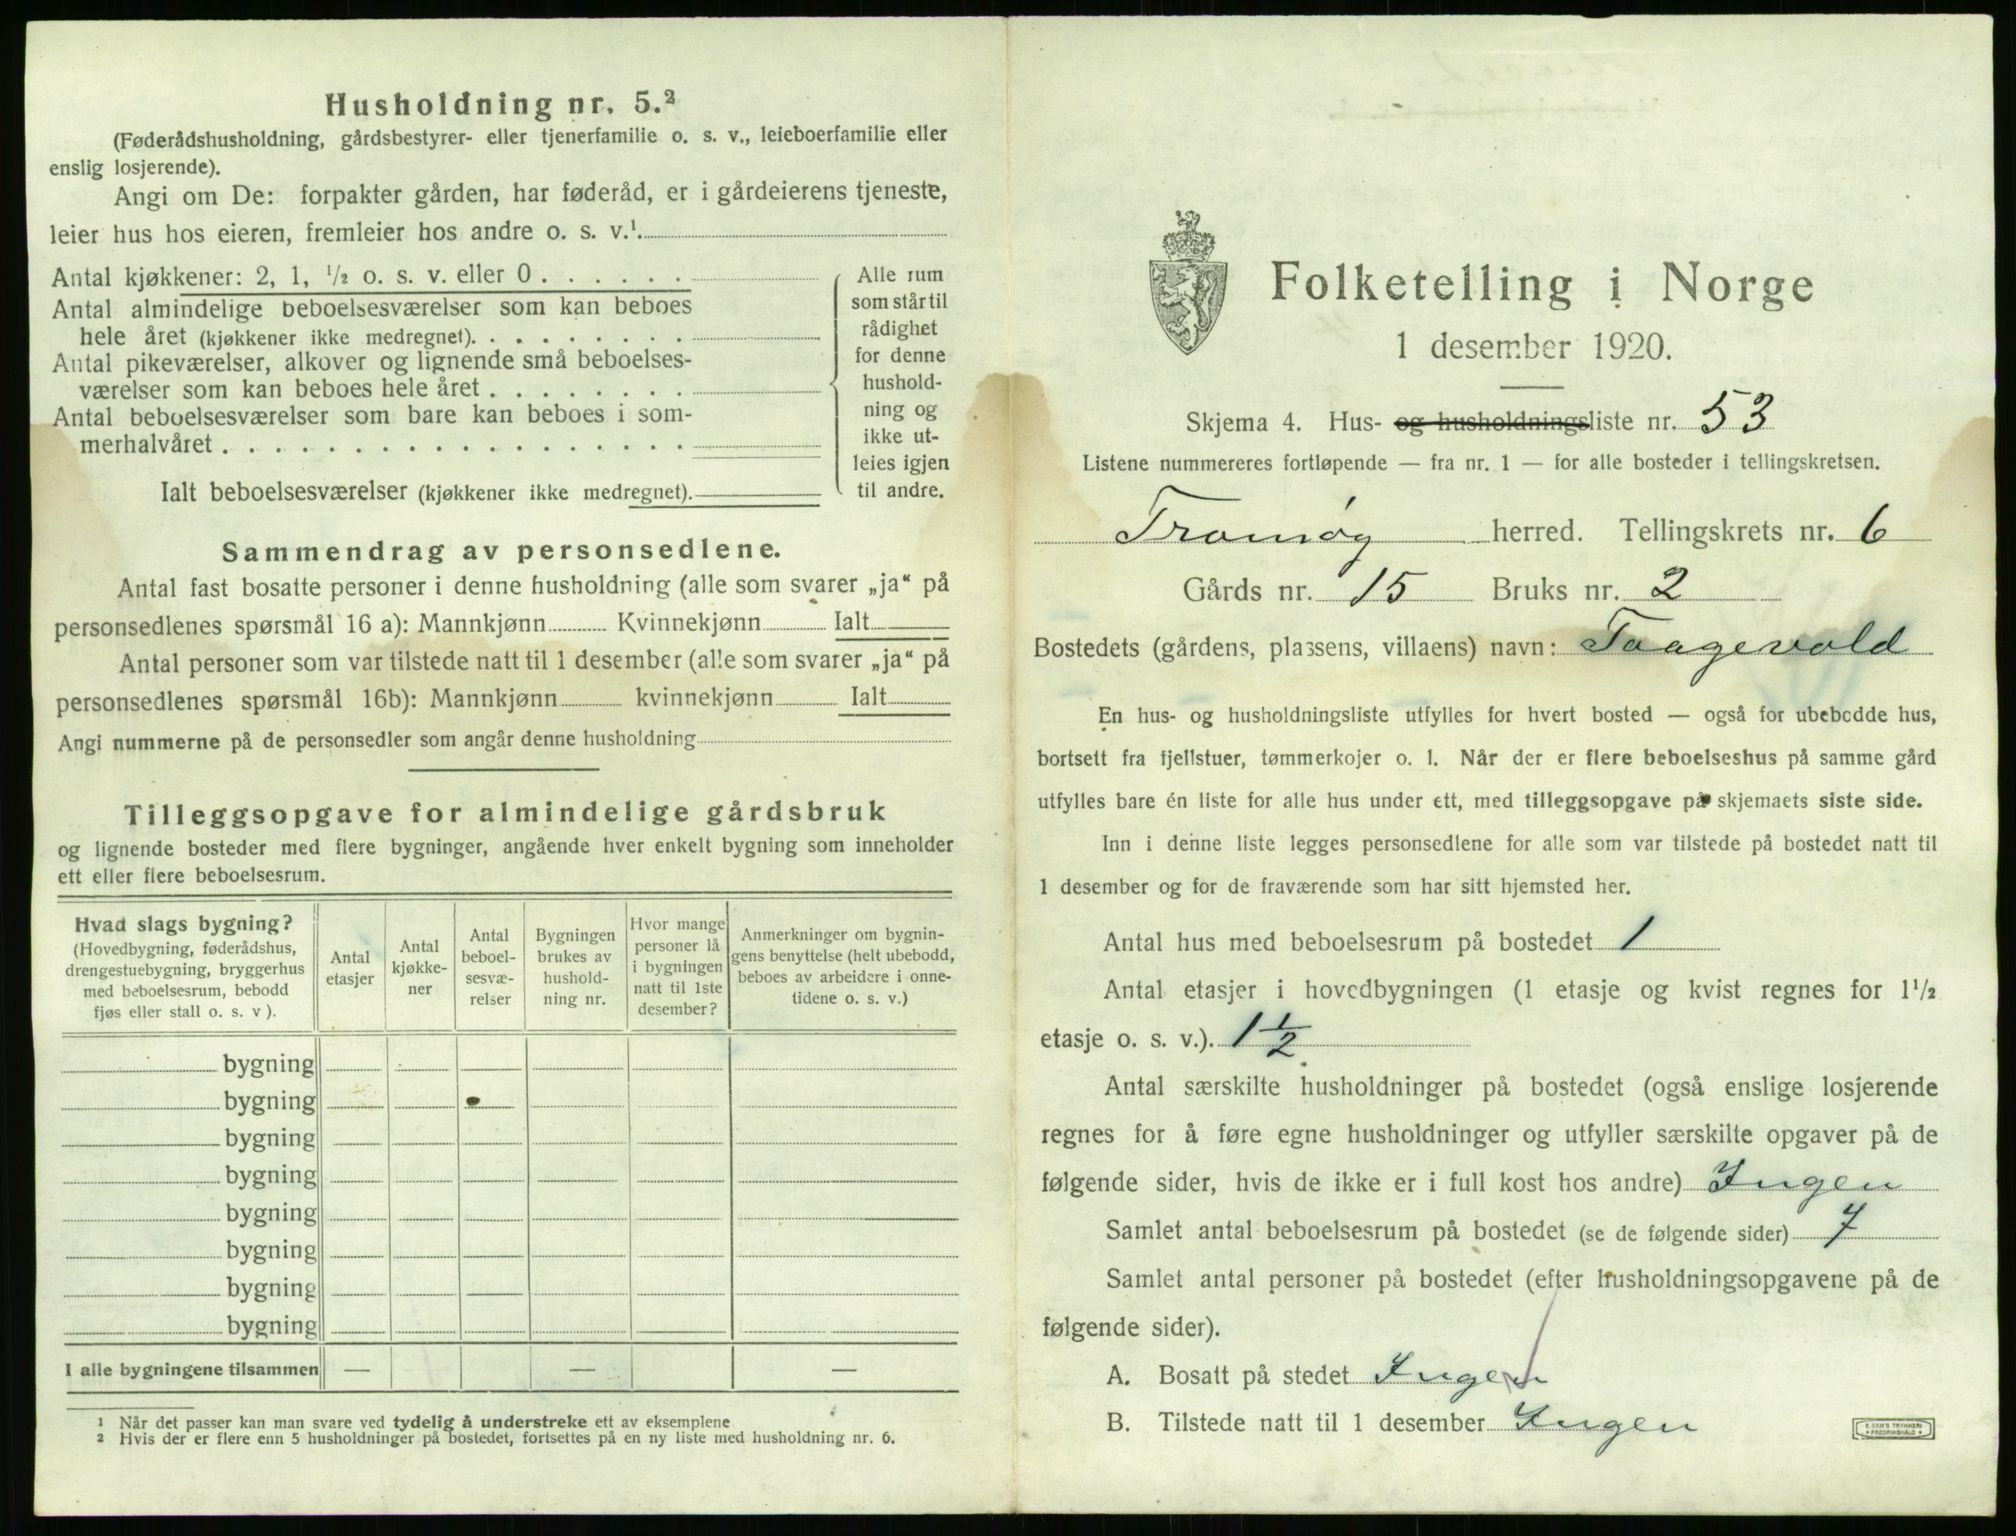 Husholdning nr. 5.²
(Føderådshusholdning, gårdsbestyrer- eller tjenerfamilie o. s. v., leieboerfamilie eller
enslig losjerende).
Angi om De: forpakter gården, har føderåd, er i gårdeierens tjeneste,
leier hus hos eieren, fremleier hos andre o. s. v.¹
Antal kjøkkener: 2, 1, ½ o. s. v. eller 0 . . . . . .
Antal almindelige beboelsesværelser som kan beboes
hele året (kjøkkener ikke medregnet). . . . . . . . .
Antal pikeværelser, alkover og lignende små beboelses-
værelser som kan beboes hele året . . . . . . . .
Antal beboelsesværelser som bare kan beboes i som-
merhalvåret . . . . . . . . . . . . . . . . . .
Ialt beboelsesværelser (kjøkkener ikke medregnet).
Alle rum
som står til
rådighet
for denne
hushold-
ning og
ikke ut-
leies igjen
til andre.
Sammendrag av personsedlene.
Antal fast bosatte personer i denne husholdning (alle som svarer „ja“ på
personsedlenes spørsmål 16 a): Mannkjønn Kvinnekjønn Ialt
Antal personer som var tilstede natt til 1 desember (alle som svarer „ja“ på
personsedlenes spørsmål 16b): Mannkjønn kvinnekjønn Ialt
Angi nummerne på de personsedler som angår denne husholdning
Tilleggsopgave for almindelige gårdsbruk
og lignende bosteder med flere bygninger, angående hver enkelt bygning som inneholder
ett eller flere beboelsesrum.
Hvad slags bygning?
(Hovedbygning, føderådshus,
drengestuebygning, bryggerhus
med beboelsesrum, bebodd
fjøs eller stall o. s. v ).
Antal
etasjer
Antal
kjøkke-
ner
Antal
beboel-
sesvæ-
relser
Bygningen
brukes av
hushold-
ning nr.
Hvor mange
personer lå
i bygningen
natt til 1ste
desember?
Anmerkninger om bygnin-
gens benyttelse (helt ubebodd,
beboes av arbeidere i onne-
tidene o. s. v.)
bygning
bygning
bygning
bygning
bygning
bygning
bygning
bygning
I alle bygningene tilsammen — — —
¹ Når det passer kan man svare ved tydelig å understreke ett av eksemplene
² Hvis der er flere enn 5 husholdninger på bostedet, fortsettes på en ny liste med husholdning nr. 6.
Folketelling i Norge
1 desember 1920.
Skjema 4. Hus- og husholdningsliste nr. 53
Listene nummereres fortløpende — fra nr. 1 — for alle bosteder i tellingskretsen.
Tromøy herred. Tellingskrets nr. 6
Gårds nr. 15 Bruks nr. 2
Bostedets (gårdens, plassens, villaens) navn: Taagevold
En hus- og husholdningsliste utfylles for hvert bosted — også for ubebodde hus,
bortsett fra fjellstuer, tømmerkojer o. l. Når der er flere beboelseshus på samme gård
utfylles bare én liste for alle hus under ett, med tilleggsopgave på skjemaets siste side.
Inn i denne liste legges personsedlene for alle som var tilstede på bostedet natt til
1 desember og for de fraværende som har sitt hjemsted her.
Antal hus med beboelsesrum på bostedet 1
Antal etasjer i hovedbygningen (1 etasje og kvist regnes for 1½
etasje o. s. v.). 1½
Antal særskilte husholdninger på bostedet (også enslige losjerende
regnes for å føre egne husholdninger og utfyller særskilte opgaver på de
følgende sider, hvis de ikke er i full kost hos andre) Ingen
Samlet antal beboelsesrum på bostedet (se de følgende sider) 7
Samlet antal personer på bostedet (efter husholdningsopgavene på de
følgende sider).
A. Bosatt på stedet Ingen
B. Tilstede natt til 1 desember Ingen
E. SEM'S TRYKKERI
FREDRIKSHALD